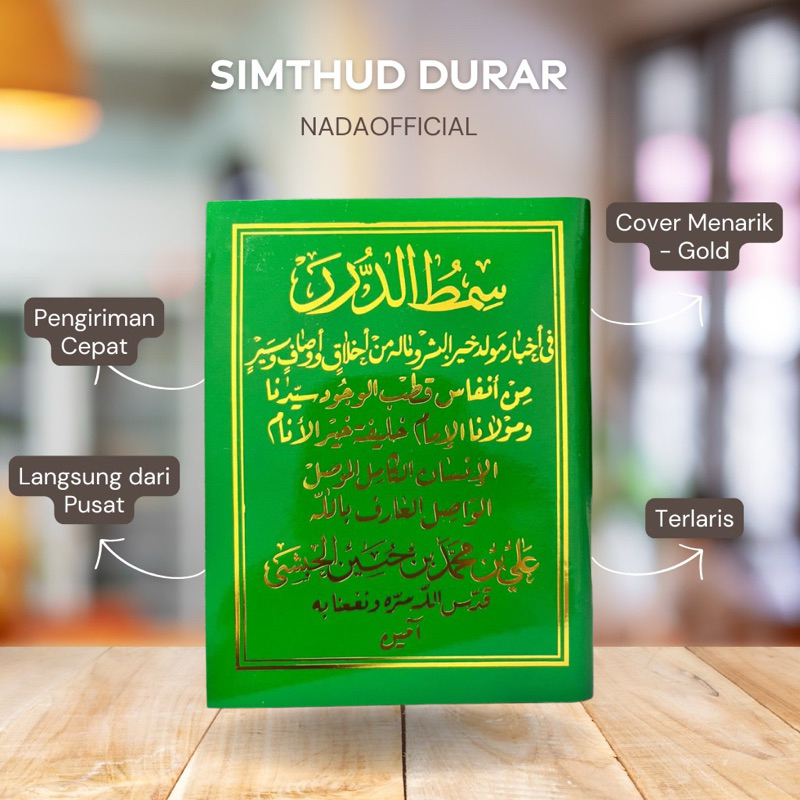 SIMTHUD DURAR
NADAOFFICIAL
Cover Menarik
- Gold
Pengiriman
Cepat
Langsung dari
Pusat
Terlaris
سِمْطُ الدُّرَرِ
في أخبار مولد خير البشر وماله من أخلاق وأوصاف وسير
مِنْ أنفاس قطب الوجود سيّدنا
ومَوْلانا الإمام خليفة خير الأنام
الإنسان الكامل الموصل
الواصل العارف باللّه
علي بن محمّد بن حسين الحبشي
قدّس اللّه سرّه ونفعنا به
آمين